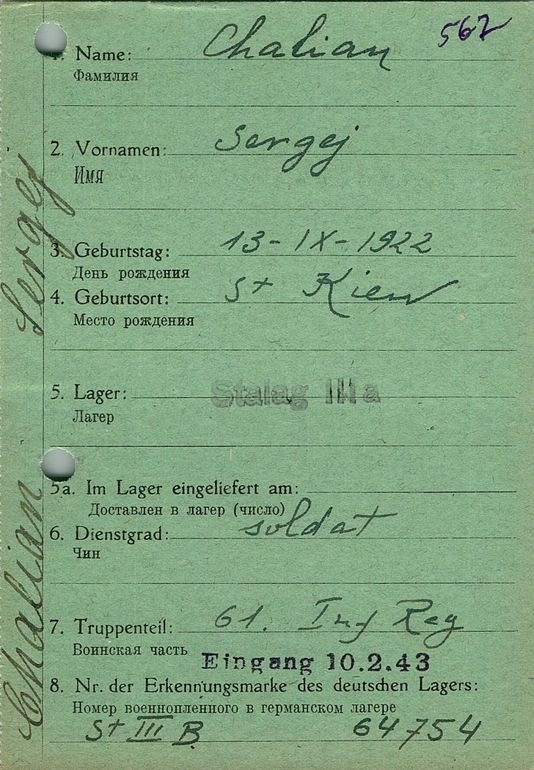 562
1. Name: Chalian
Фамилия
2. Vornamen: Sergej
Имя
3. Geburtstag: 13-IX-1922
День рождения
4. Geburtsort: St Kiew
Место рождения
5. Lager: Stalag III a
Лагерь
5a. Im Lager eingeliefert am:
Доставлен в лагерь (число)
6. Dienstgrad: soldat
Чин
7. Truppenteil: 61. Inf Reg
Воинская часть
Eingang 10.2.43
8. Nr. der Erkennungsmarke des deutschen Lagers:
Номер военнопленного в германском лагере
St III B 64754
Chalian Sergej